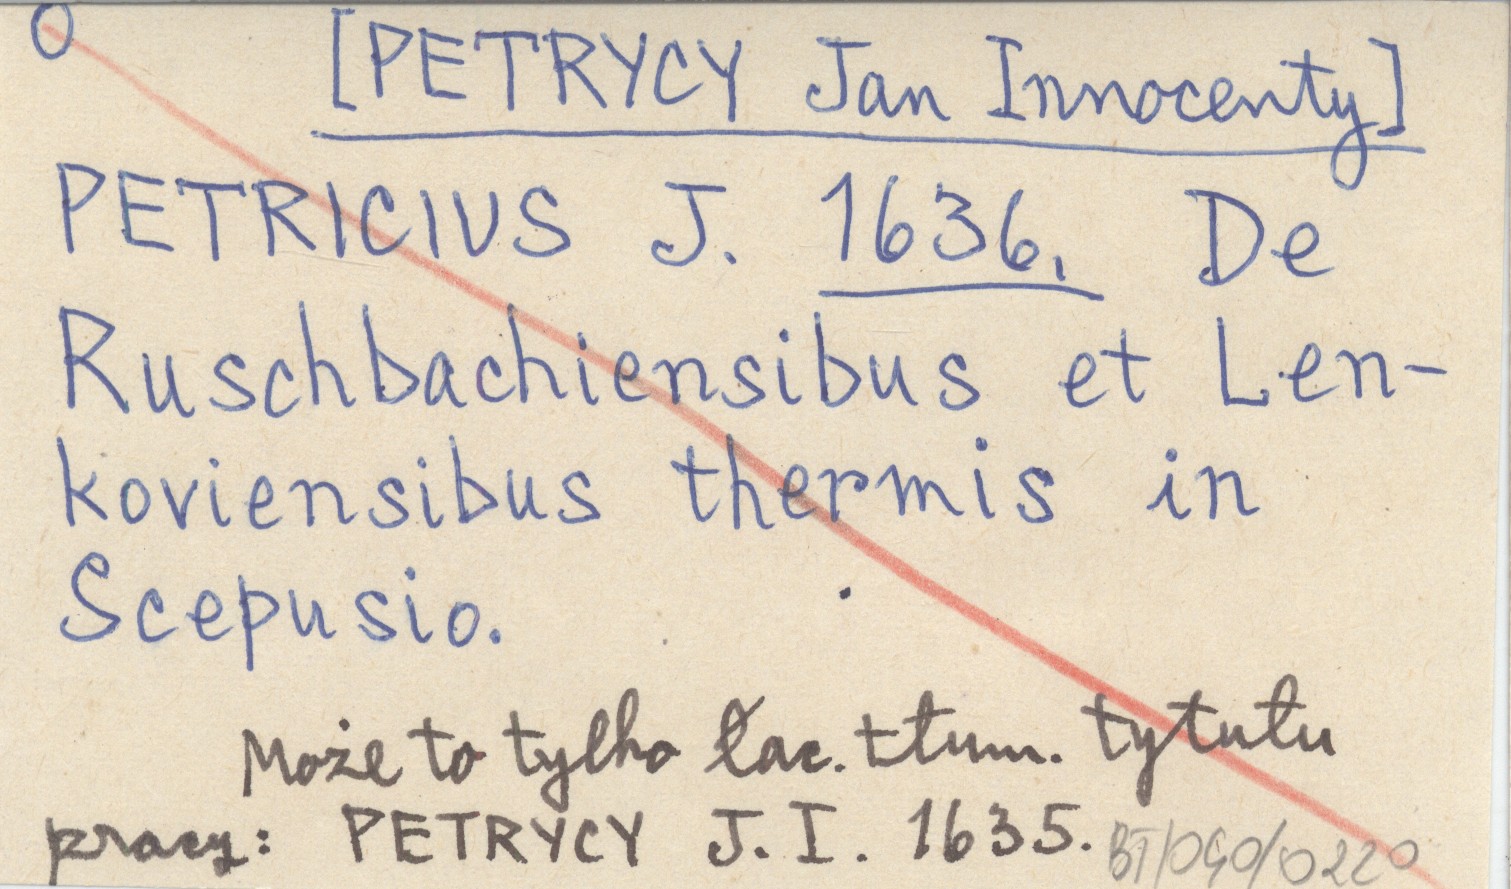 O
[PETRYCY Jan Innocenty]
PETRICIUS J. 1636. De
Ruschbachiensibus et Len-
koviensibus thermis in
Scepusio.
Może to tylko łac. tłum. tytułu
pracy: PETRYCY J. I. 1635.
BT/040/0220